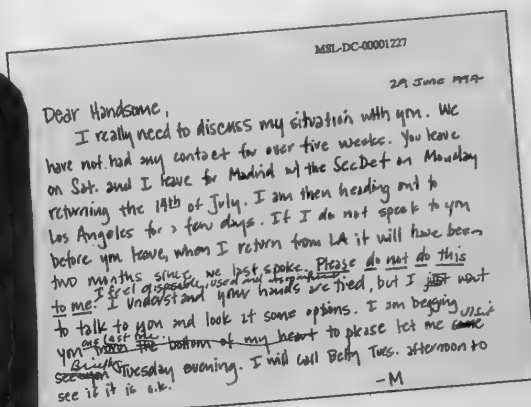 MSL-DC-00001227
29 June 1997
Dear Handsome,
I really need to discuss my situation with you. We
have not had any contact for over five weeks. You leave
on Sat. and I leave for Madrid w/ the SecDef on Monday
returning the 14th of July. I am then heading out to
Los Angeles for a few days. If I do not speak to you
before you leave, when I return from LA it will have been
two months since we last spoke. Please do not do this
I feel disposable, used and insignificant.
to me. I understand your hands are tied, but I just want
to talk to you and look at some options. I am begging
you one last time from the bottom of my heart to please let me come visit
briefly see you Tuesday evening. I will call Betty Tues. afternoon to
see if it is o.k.
-M